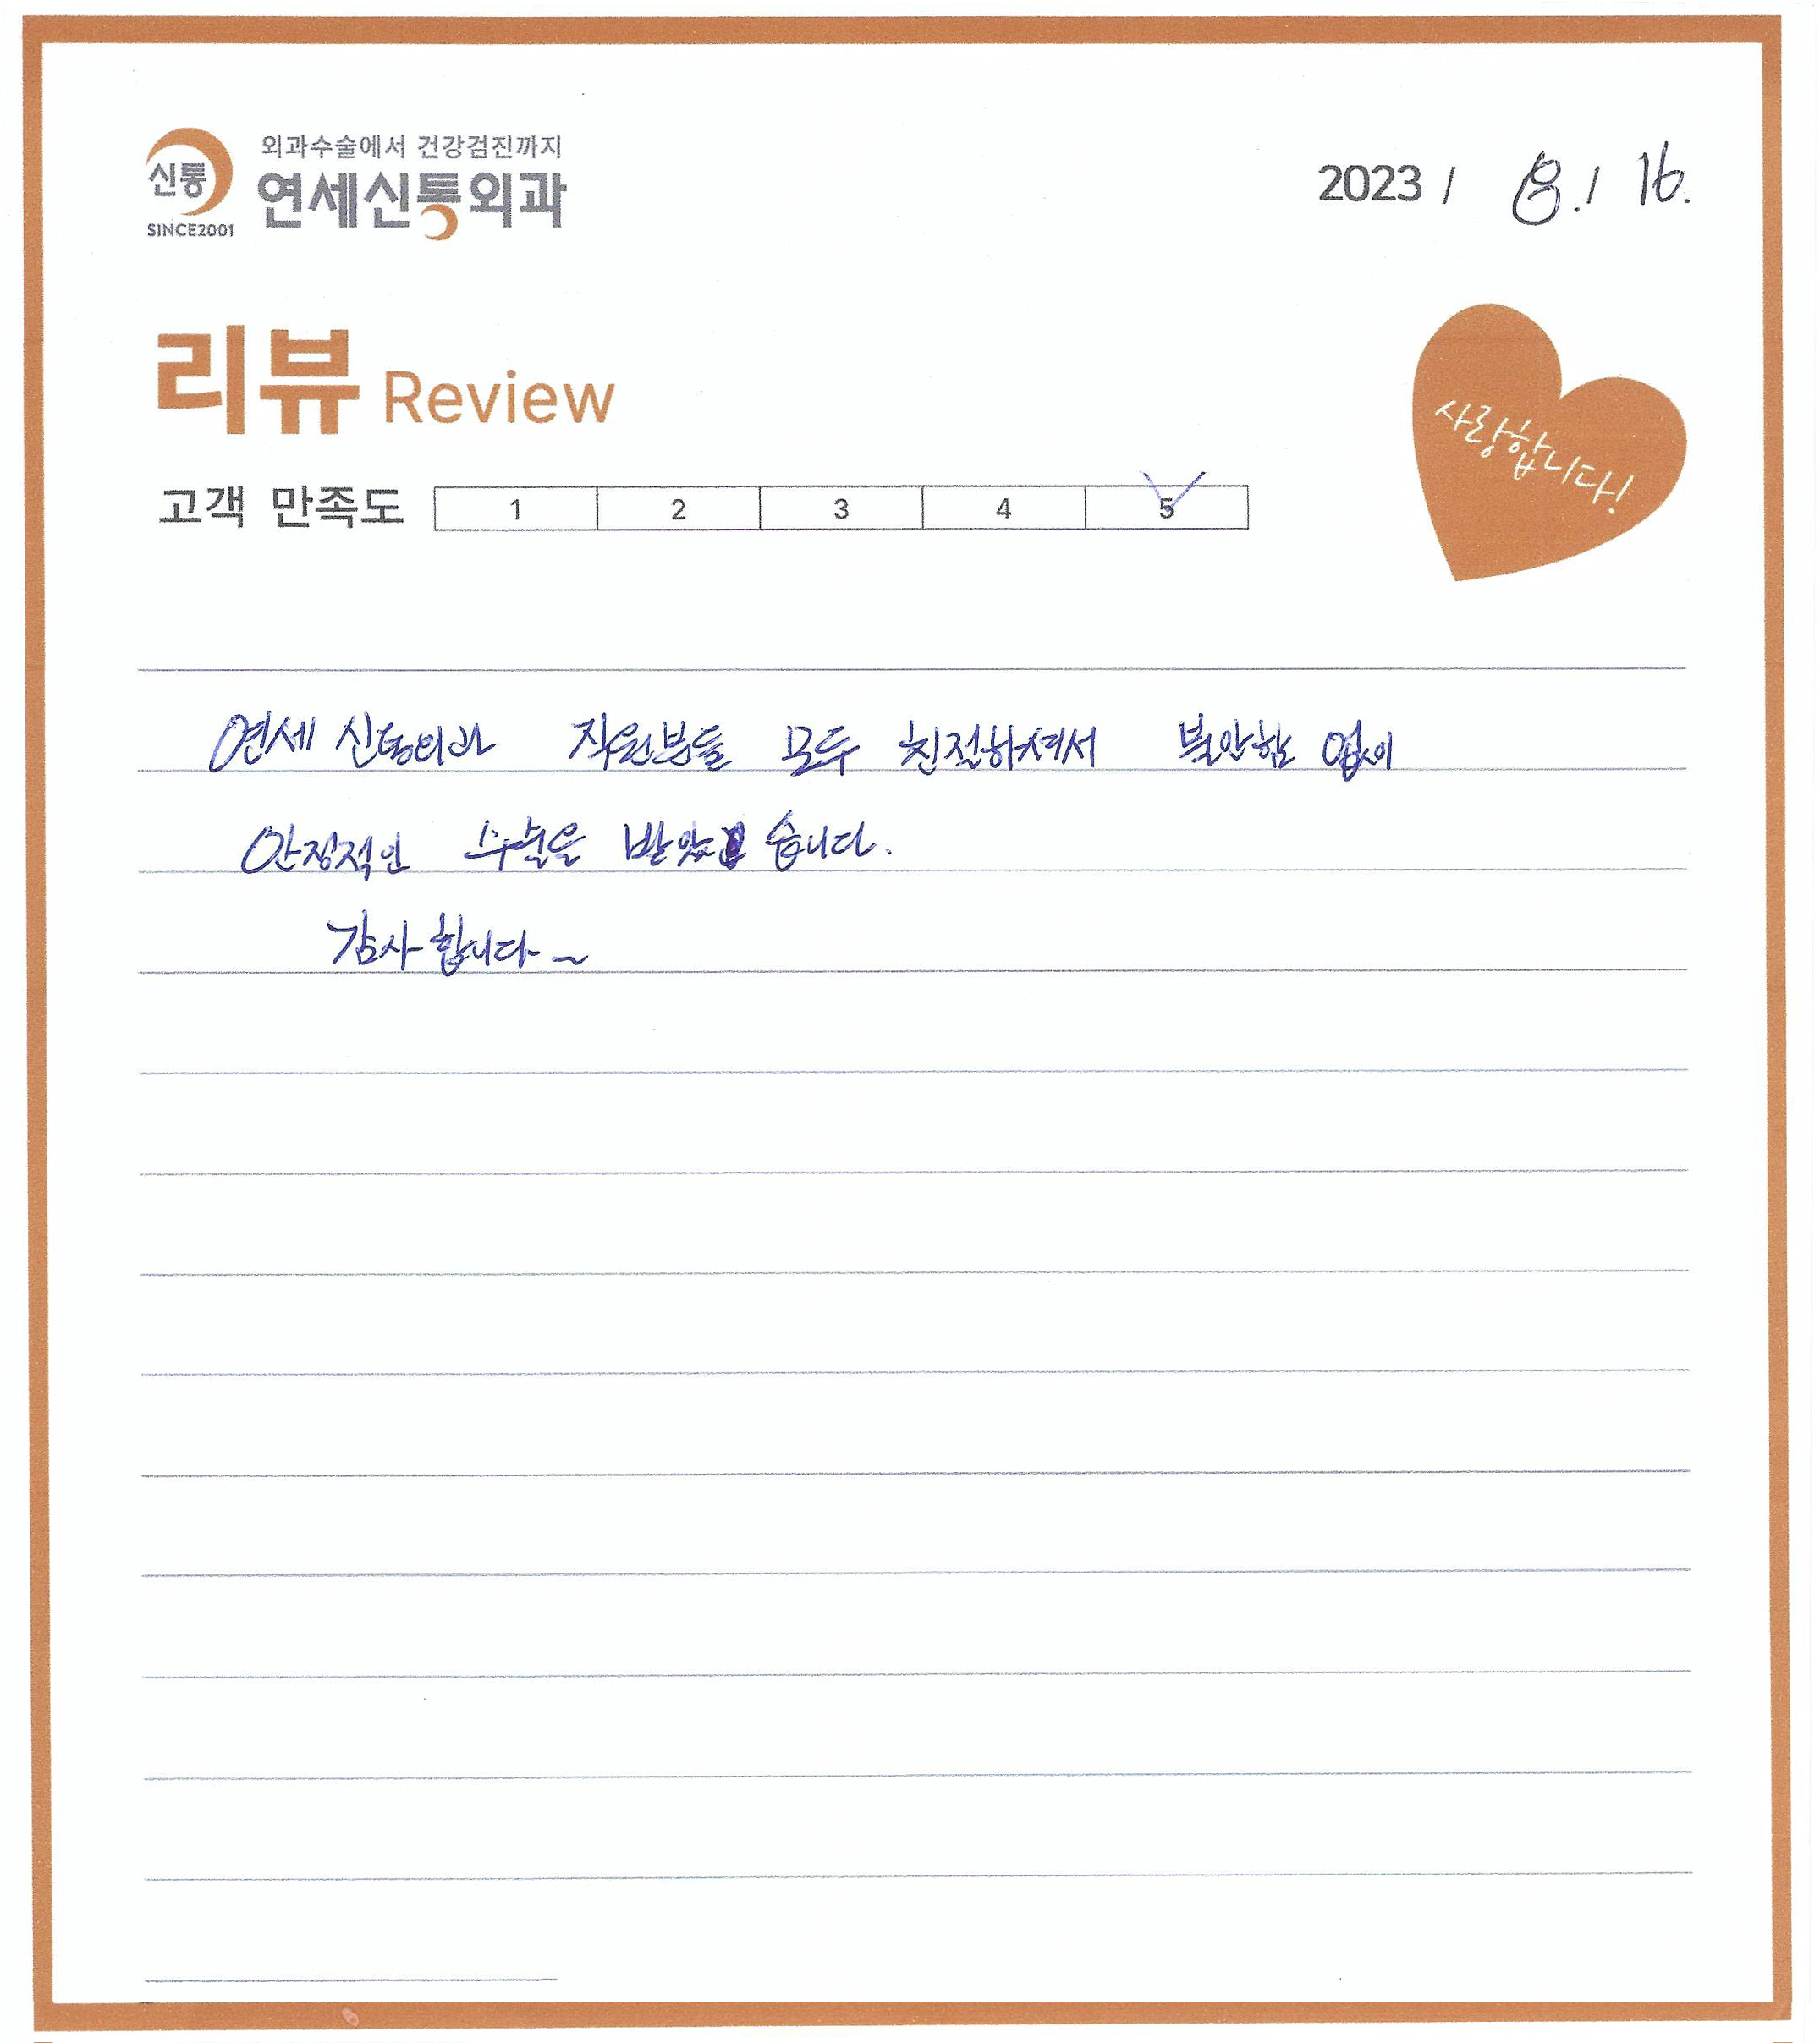 신통
SINCE2001
외과수술에서 건강검진까지
연세신통외과
2023 / 8. / 16.
리뷰 Review
사랑합니다!
고객 만족도 1 2 3 4 5
연세 신통외과 직원분들 모두 친절하셔서 불안함 없이
안정적인 수술을 받았습니다.
감사합니다~